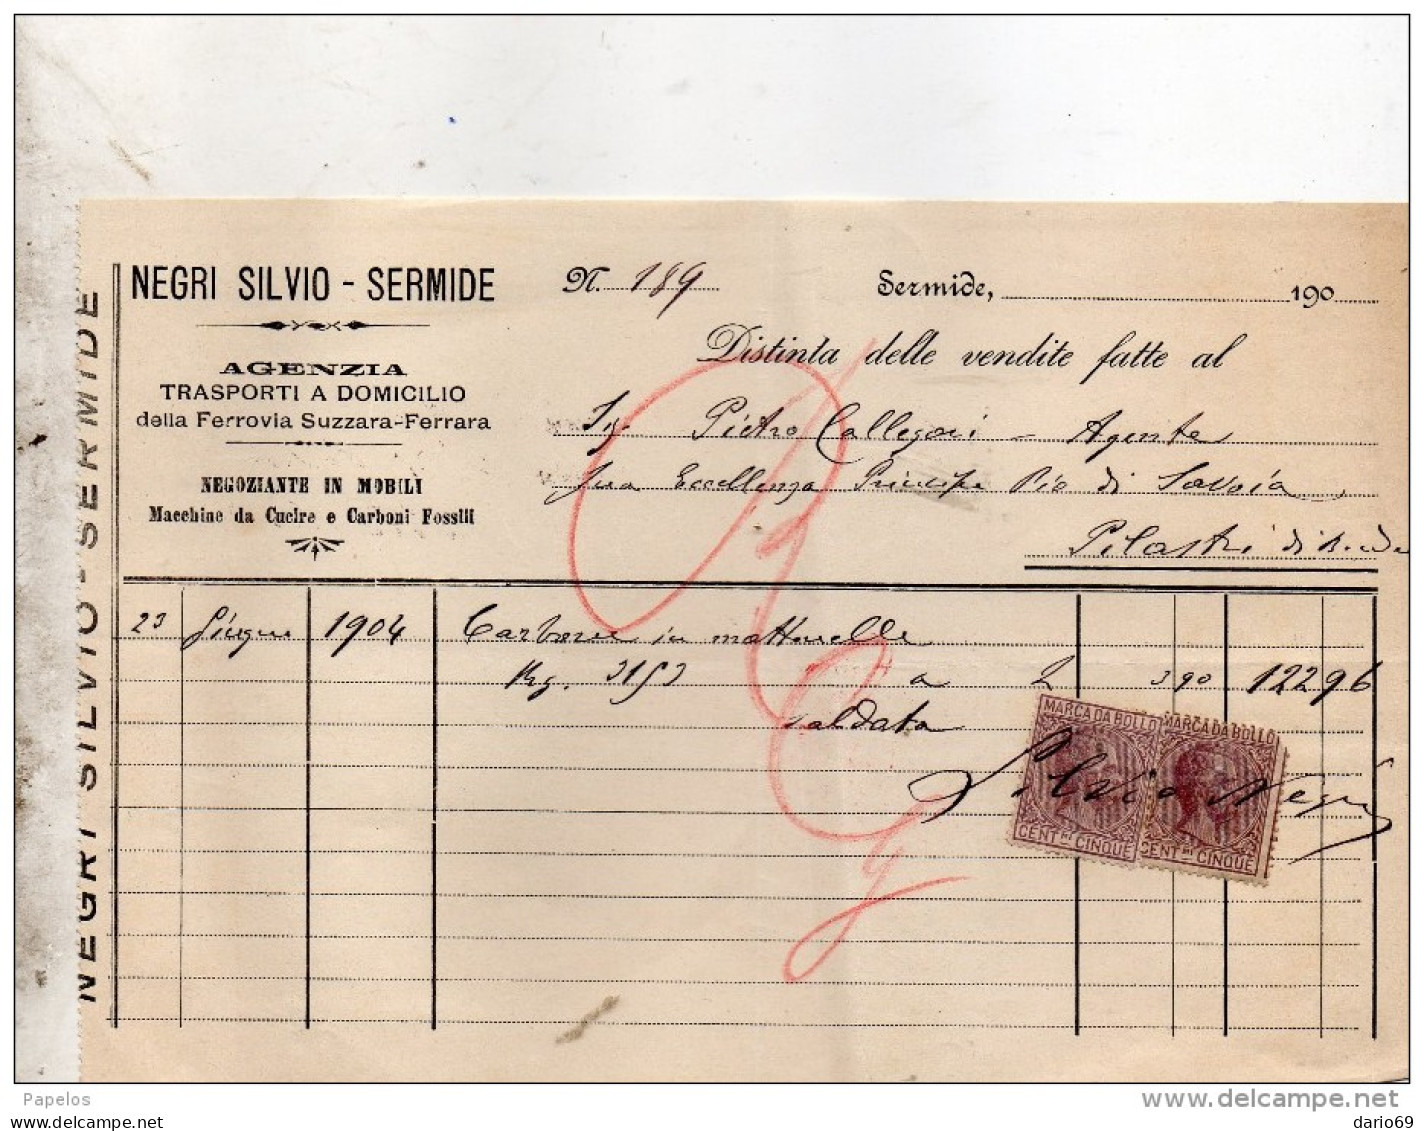 NEGRI SILVIO - SERMIDE
NEGRI SILVIO - SERMIDE
N. 189
Sermide, 190
AGENZIA
TRASPORTI A DOMICILIO
della Ferrovia Suzzara-Ferrara
NEGOZIANTE IN MOBILI
Macchine da Cucire e Carboni Fossili
Distinta delle vendite fatte al
Sig. Pietro Callegari - Agente
Sua Eccellenza Principe Pio di Savoia
Pilastri di
23 Giugno 1904 Carbone in mattonelle
Kg. 3153 a L 390 12296
saldata
Silvio Negri
MARCA DA BOLLO
CENT.MI CINQUE
MARCA DA BOLLO
CENT.MI CINQUE
Papelos
www.delcampe.net
dario69